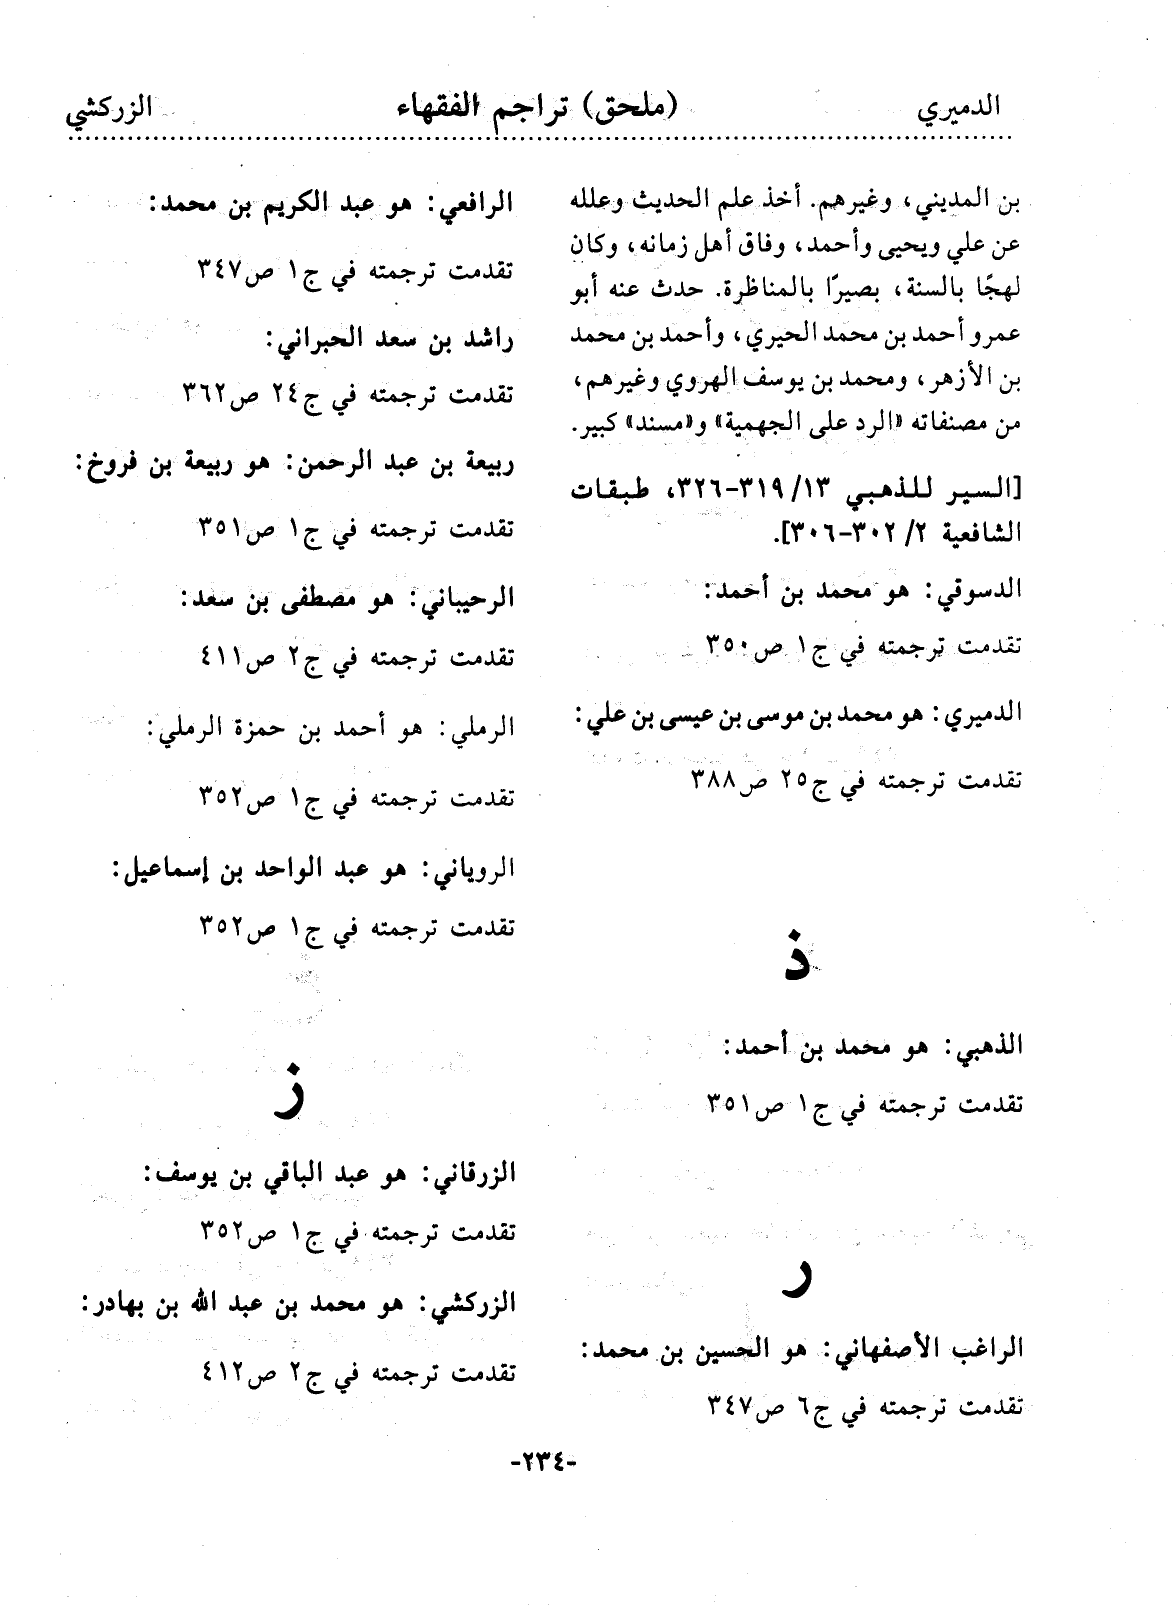 الدميري (ملحق) تراجم الفقهاء الزركشي
بن المديني، وغيرهم. أخذ علم الحديث وعلله
عن علي ويحيى وأحمد، وفاق أهل زمانه، وكان
لهجًا بالسنة، بصيرًا بالمناظرة. حدث عنه أبو
عمرو أحمد بن محمد الحيري، وأحمد بن محمد
بن الأزهر، ومحمد بن يوسف الهروي وغيرهم،
من مصنفاته «الرد على الجهمية» و«مسند» كبير.
[السير للذهبي ١٣/ ٣١٩-٣٢٦، طبقات
الشافعية ٢/ ٣٠٢-٣٠٦].
الدسوقي: هو محمد بن أحمد:
تقدمت ترجمته في ج١ ص٣٥٠
الدميري: هو محمد بن موسى بن عيسى بن علي:
تقدمت ترجمته في ج٢٥ ص٣٨٨
ذ
الذهبي: هو محمد بن أحمد:
تقدمت ترجمته في ج١ ص٣٥١
ر
الراغب الأصفهاني: هو الحسين بن محمد:
تقدمت ترجمته في ج٦ ص٣٤٧
الرافعي: هو عبد الكريم بن محمد:
تقدمت ترجمته في ج١ ص٣٤٧
راشد بن سعد الحبراني:
تقدمت ترجمته في ج٢٤ ص٣٦٢
ربيعة بن عبد الرحمن: هو ربيعة بن فروخ:
تقدمت ترجمته في ج١ ص٣٥١
الرحيباني: هو مصطفى بن سعد:
تقدمت ترجمته في ج٢ ص٤١١
الرملي: هو أحمد بن حمزة الرملي:
تقدمت ترجمته في ج١ ص٣٥٢
الروياني: هو عبد الواحد بن إسماعيل:
تقدمت ترجمته في ج١ ص٣٥٢
ز
الزرقاني: هو عبد الباقي بن يوسف:
تقدمت ترجمته في ج١ ص٣٥٢
الزركشي: هو محمد بن عبد الله بن بهادر:
تقدمت ترجمته في ج٢ ص٤١٢
-٢٣٤-